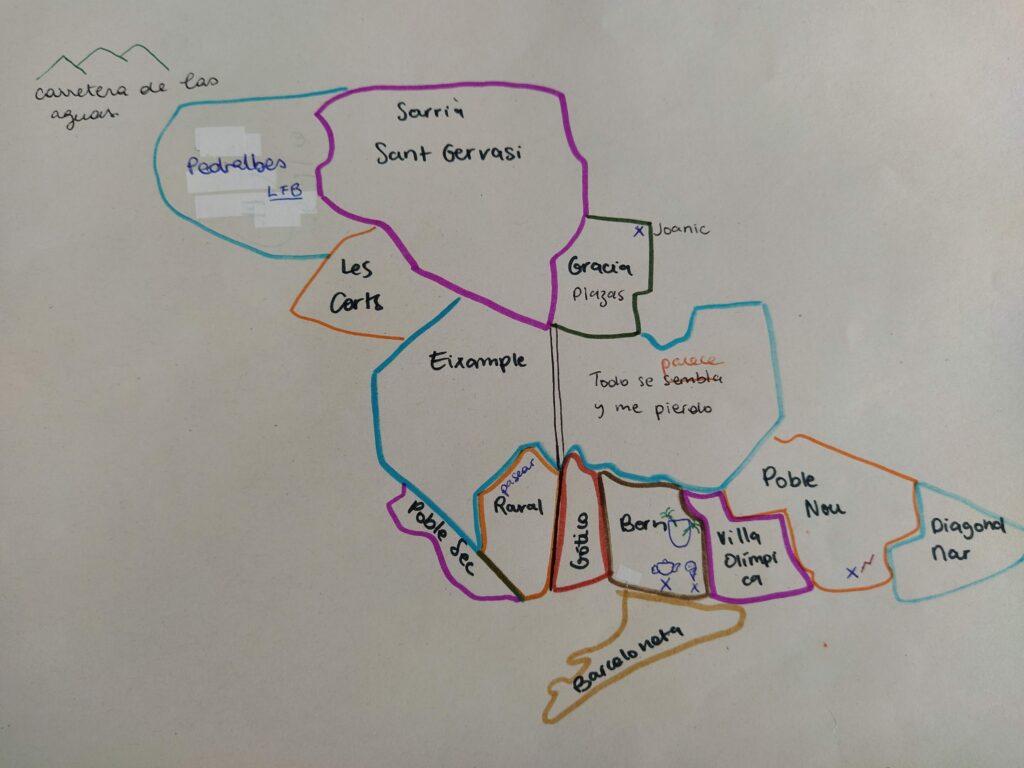 carretera de las
aguas
Sarrià
Sant Gervasi
Pedralbes
LFB
Joanic
Les
Corts
Gracia
Plazas
Eixample
parece
Todo se sembla
y me pierdo
Poble Sec
pasear
Raval
Gótico
Born
Villa
Olímpi
ca
Poble
Nou
Diagonal
Mar
Barceloneta